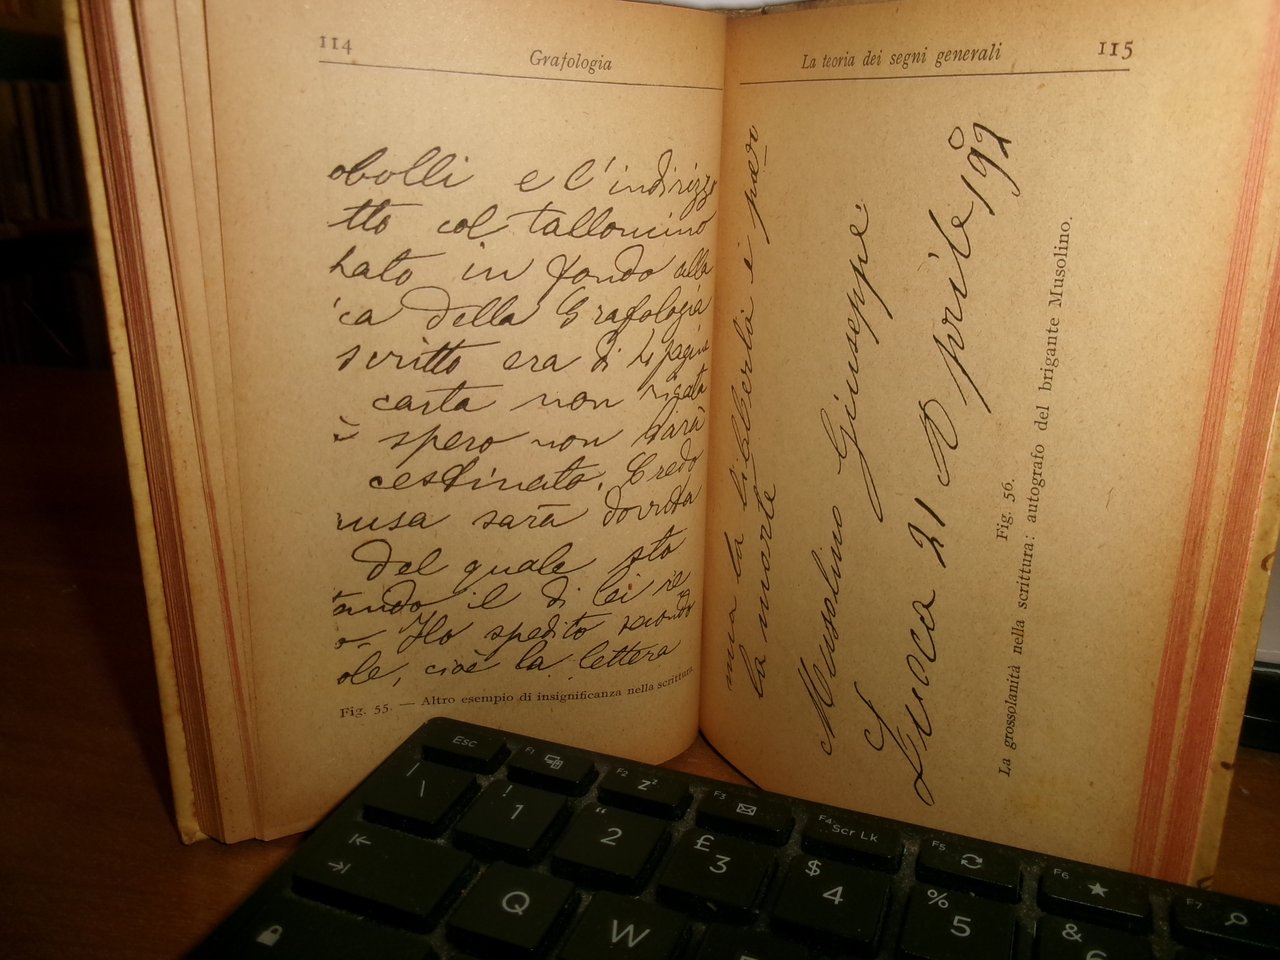 114
Grafologia
obolli e l'indirizzo
tto col talloncino
hato in fondo alla
ica della Grafologia
scritto era di 4 pagine
carta non rigata
è spero non sarà
cestinato. Credo
usa sarà dovuta
del quale sto
ando il di lei re
o- Ho spedito secondo
ole, cioè la lettera
Fig. 55. — Altro esempio di insignificanza nella scrittura.
La teoria dei segni generali
115
ma la libbertà è
la morte
Musolino Giuseppe
Lucca 21 Aprile 19
Fig. 56.
La grossolanità nella scrittura: autografo del brigante Musolino.
Esc
F1
F2
zz
F3
F4
Scr Lk
F5
F6
F7
\
|
!
1
"
2
£
3
$
4
%
5
&
6
Q
W